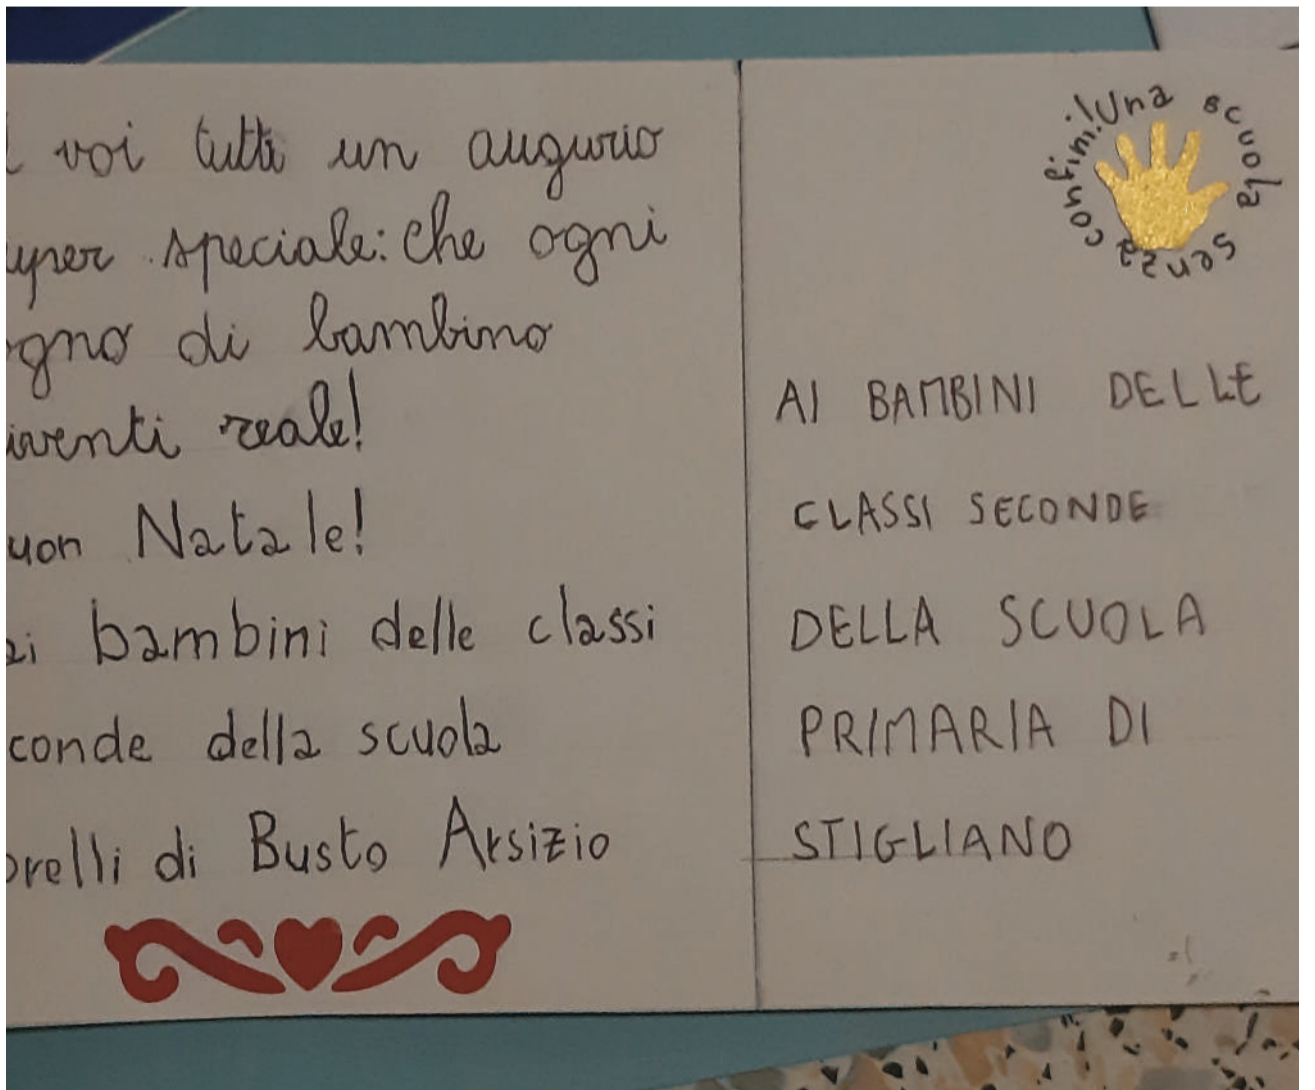 voi tutti un augurio
speciale: che ogni
di bambino
reale!
Natale!
bambini delle classi
della scuola
di Busto Arsizio
Una scuola senza confini!
AI BAMBINI DELLE
CLASSI SECONDE
DELLA SCUOLA
PRIMARIA DI
STIGLIANO